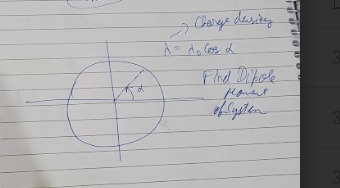 Charge density
λ = λ₀ cos α
α
Find Dipole
moment
of System